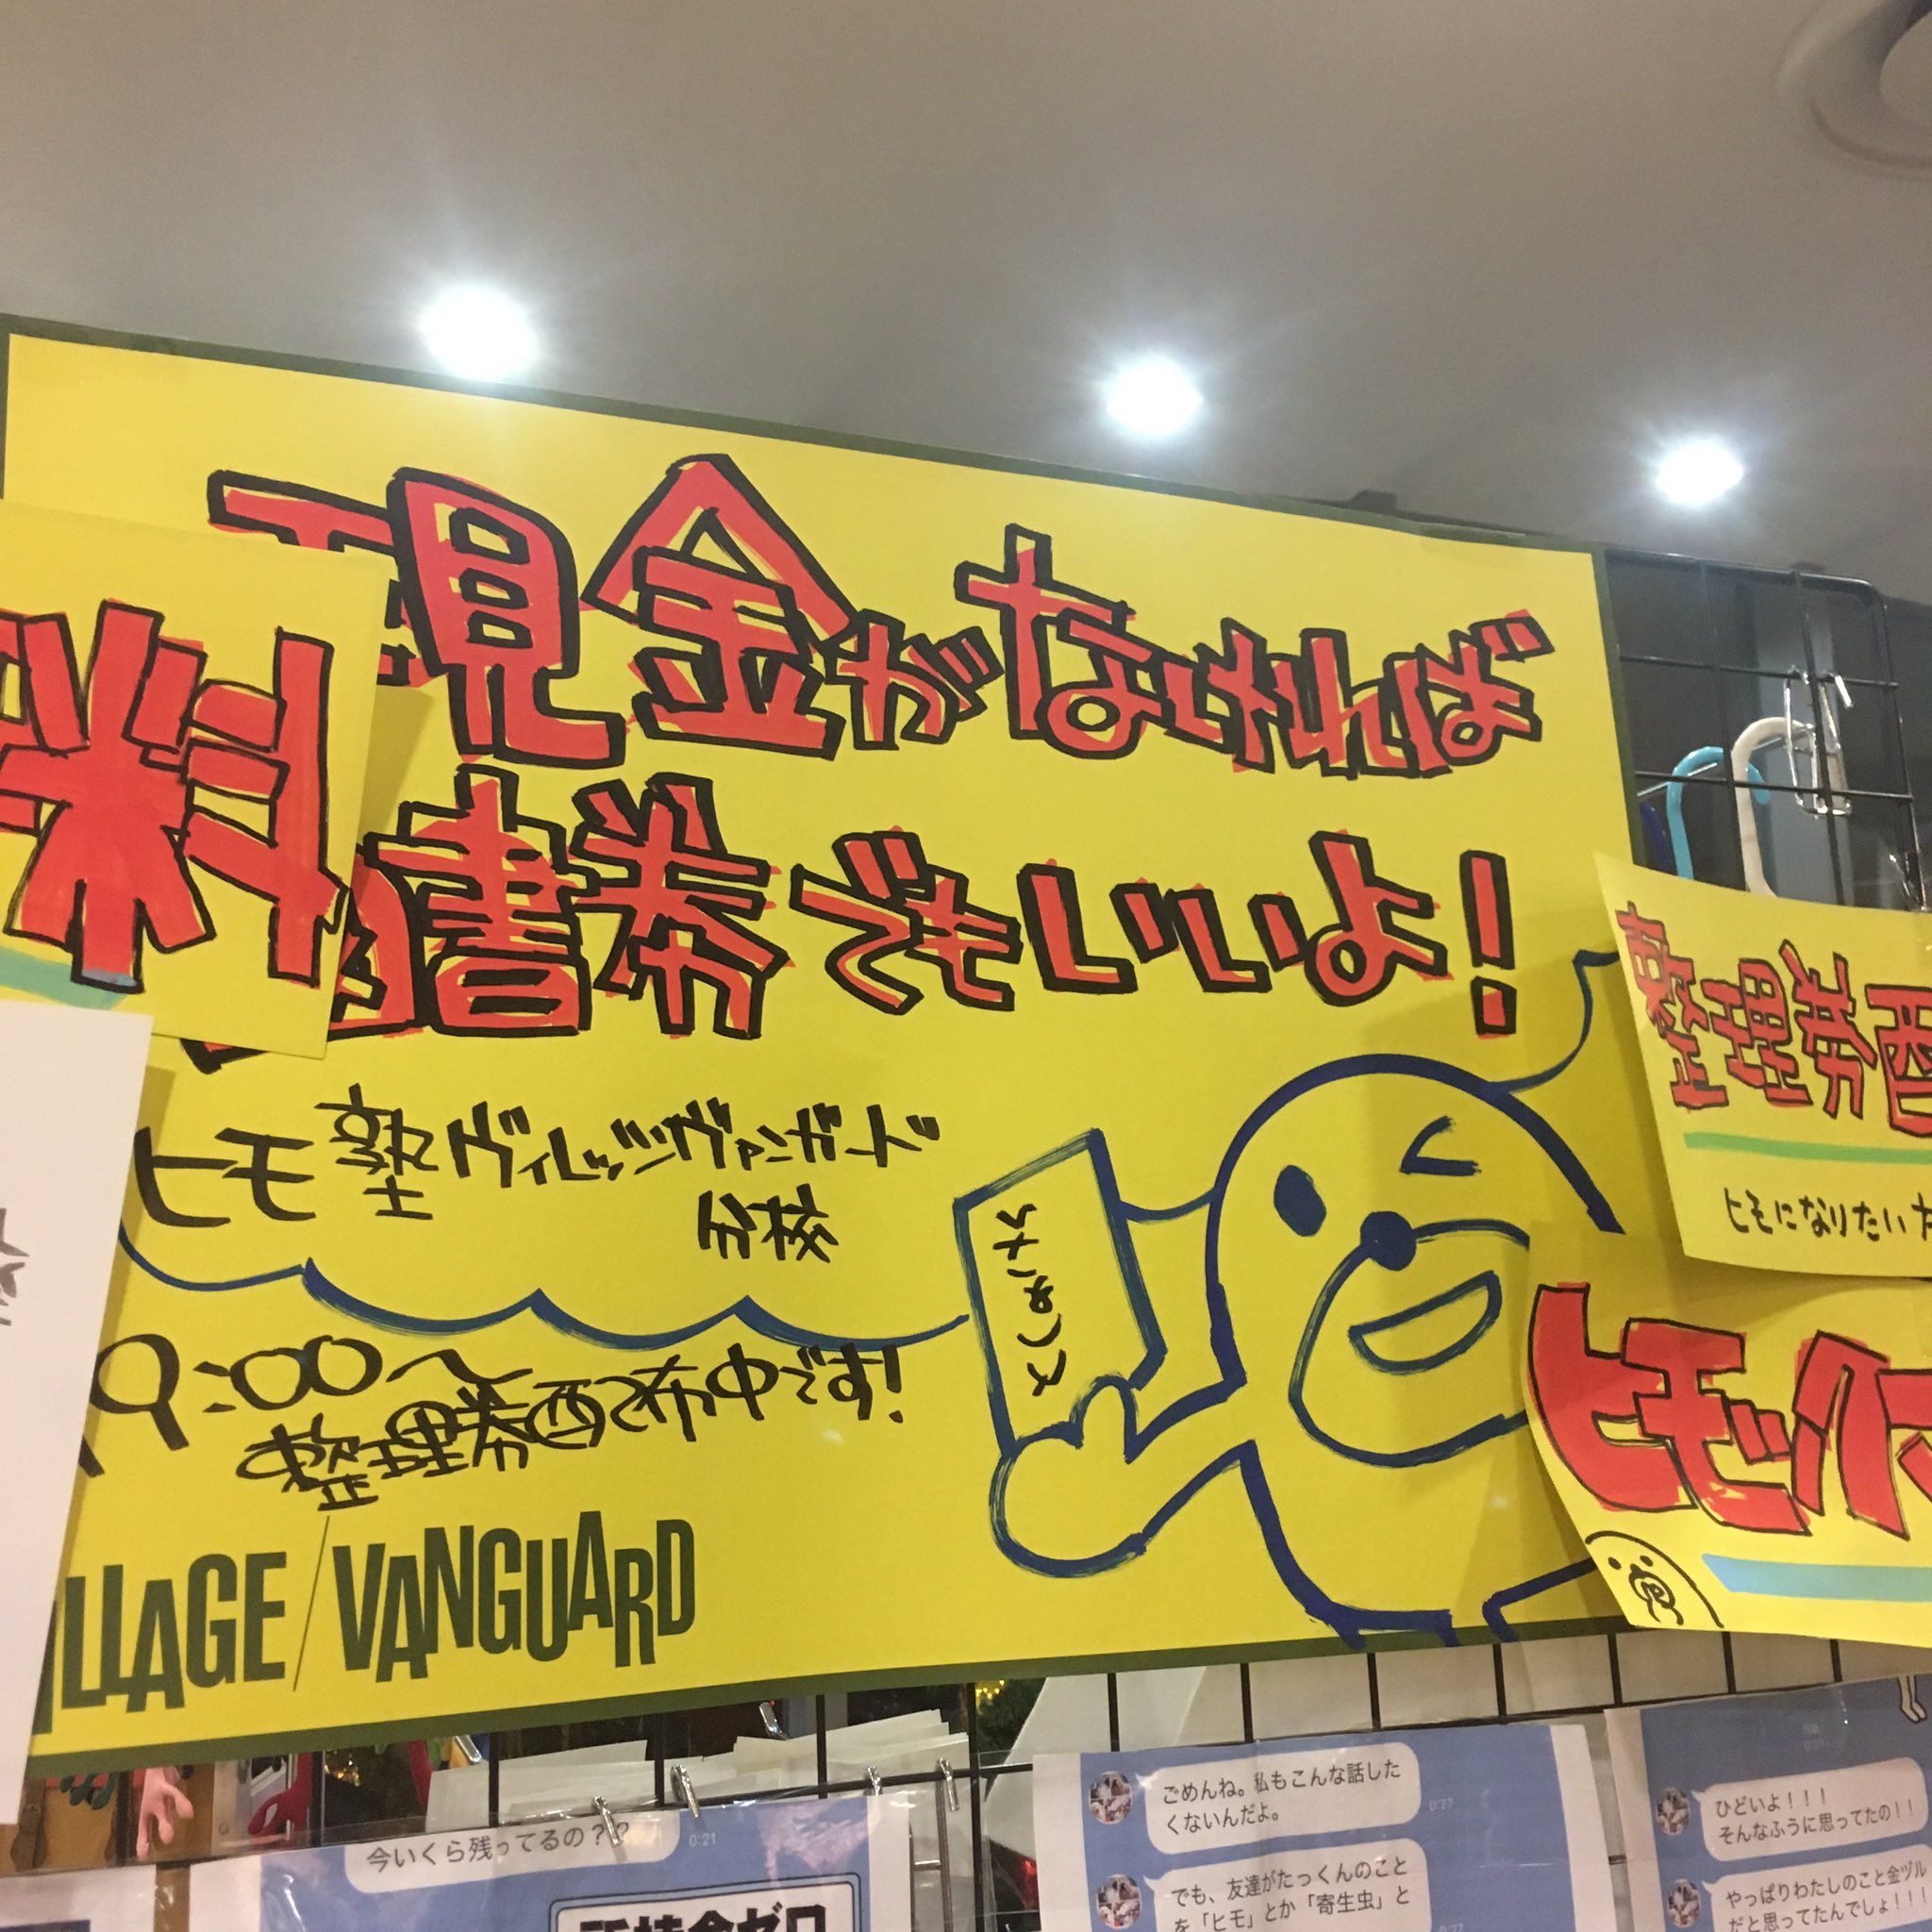 現金がなければ
図書券でもいいよ!
料
ヒモ塾ヴィレッジヴァンガード
分校
9:00〜
整理券配布中です!
VILLAGE/VANGUARD
整理券配
ヒモになりたい
ヒモ
今いくら残ってるの??
0:21
所持金ゼロ
ごめんね。私もこんな話した
くないんだよ。
0:27
でも、友達がたっくんのこと
を「ヒモ」とか「寄生虫」と
0:27
0:31
ひどいよ!!!
そんなふうに思ってたの!!
やっぱりわたしのこと金ヅル
だと思ってたんでしょ!!!